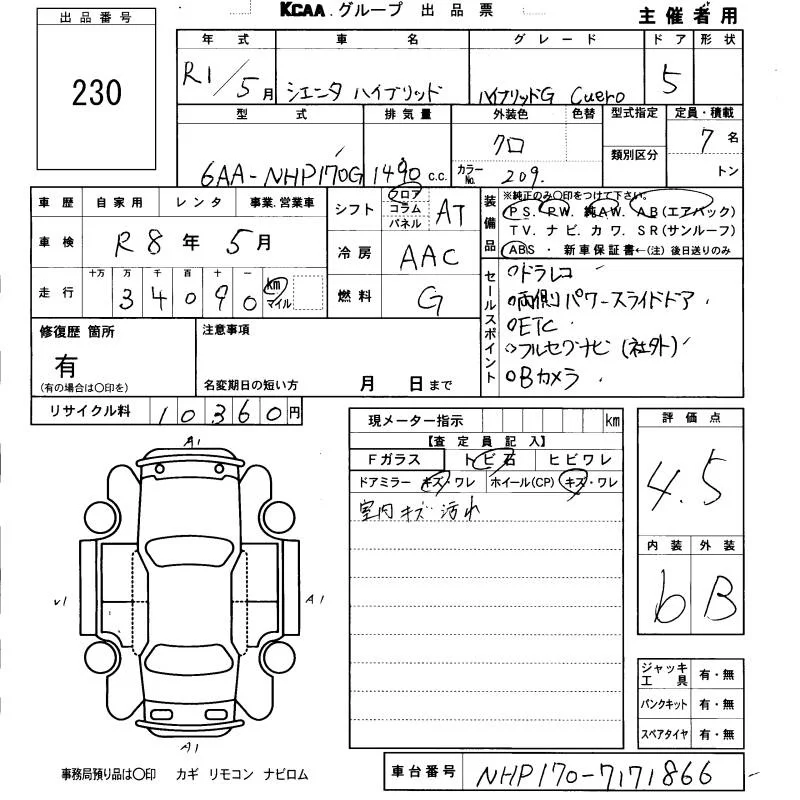 KCAA.グループ 出品票
主催者用
出品番号
230
年式 車名 グレード ドア 形状
R1/5月 シエンタ ハイブリッド ハイブリッドG Cuero 5
型式 排気量 外装色 色替 型式指定 定員・積載
6AA-NHP170G 1490 c.c. クロ 7名
カラーNo. 209. 類別区分 トン
車歴 自家用 レンタ 事業.営業車
車検 R8年5月
走行 十万 万 千 百 十 一
34090 km マイル
シフト フロア コラム パネル AT
冷房 AAC
燃料 G
装備品
※純正のみ〇印をつけて下さい。
PS. PW. 純AW. AB(エアバック)
TV. ナビ. カワ. SR(サンルーフ)
ABS ・ 新車保証書←(注)後日送りのみ
セールスポイント
○ドラレコ
○両側パワースライドドア.
○ETC
○フルセグナビ(社外)
○Bカメラ
修復歴 箇所
有
(有の場合は〇印を)
注意事項
名変期日の短い方 月 日まで
リサイクル料 10360円
現メーター指示 km
【査定員記入】
Fガラス トビ石 ヒビワレ
ドアミラー キズ・ワレ ホイール(CP) キズ・ワレ
室内キズ汚れ
評価点
4.5
内装 外装
b B
A1
V1
A1
A1
ジャッキ工具 有・無
パンクキット 有・無
スペアタイヤ 有・無
事務局預り品は〇印 カギ リモコン ナビロム
車台番号 NHP170-7171866